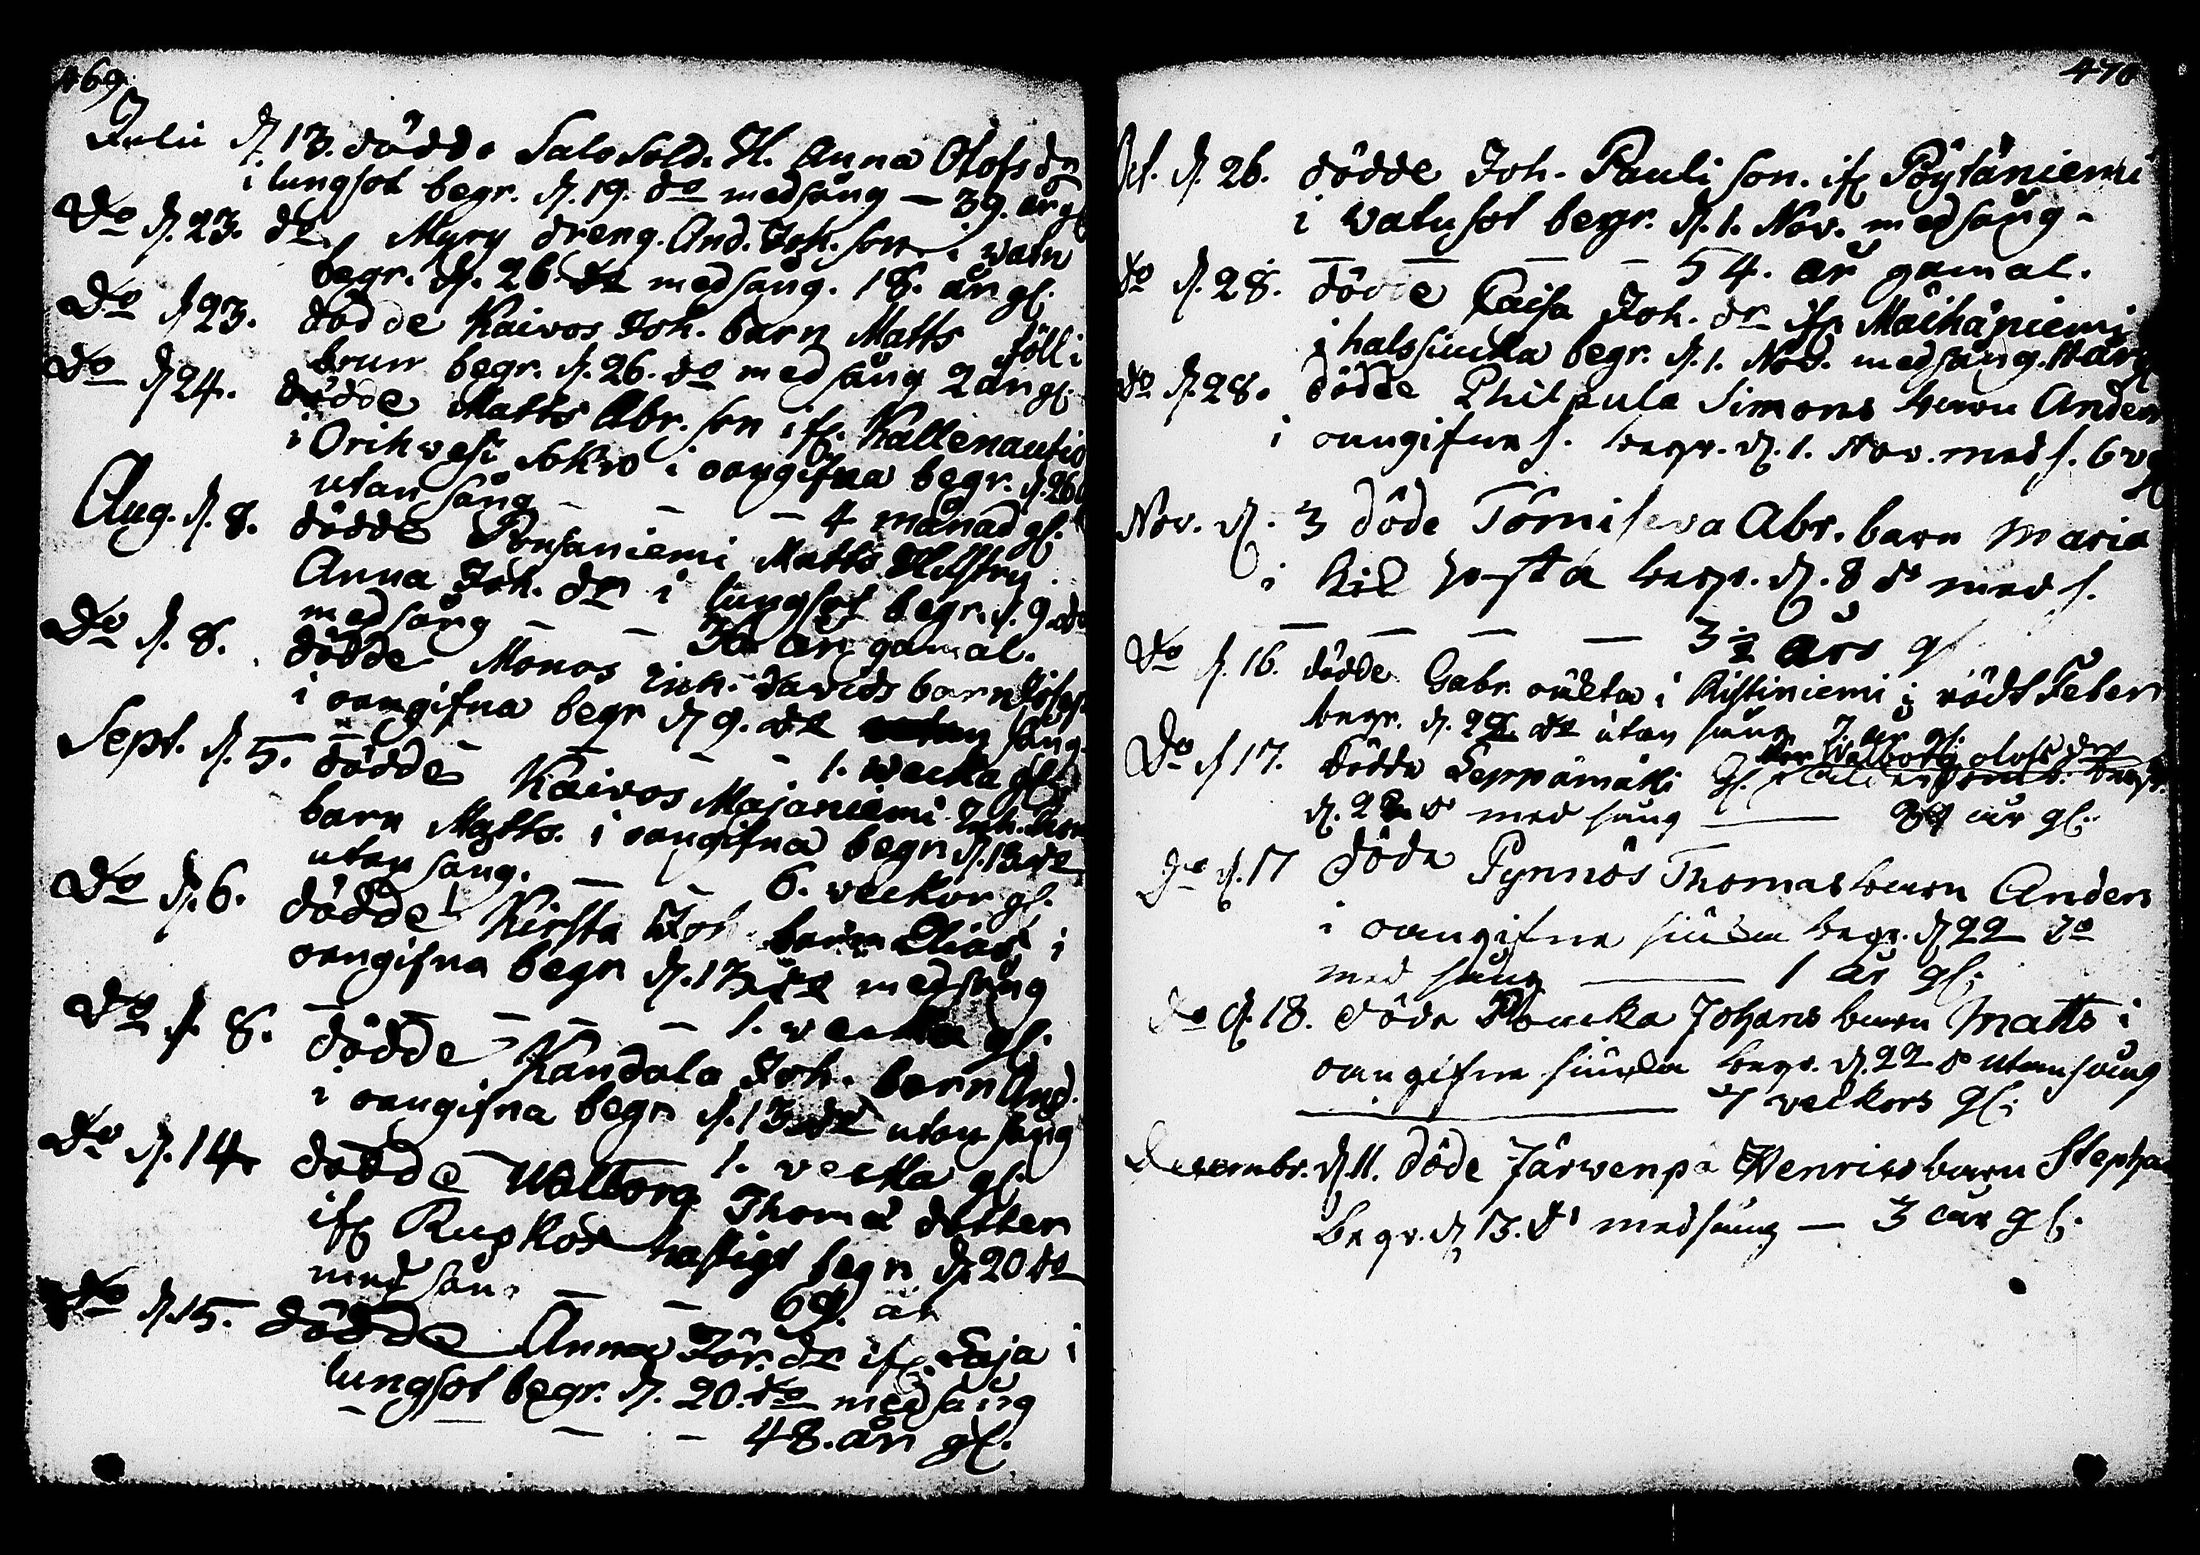 469.
Julii d. 13. dödde Salo Sold. H. Anna Olofs dr
i lungsot begr. d. 19. do med sång — 39. år gl
Do d. 23. do Myry dreng. And. Joh. son i watn
begr. d. 26. do med sång. 18. år gl.
Do d 23. dödde Kaivos Joh. barn Matts föll i
brun begr. d. 26. do med sång 2 år gl.
Do d 24. dödde Matts Abr. son if. Kallenautio
i Orihvesi Sokn i oangifna begr. d. 26
utan sång — — — 4 månad gl.
Aug. d. 8. dödde Ponsaniemi Matts Hustru
Anna Joh. dr i lungsot begr. d. 9 do
med sång — — år gamal.
Do d. 8. dödde Monos Davids barn
i oangifna begr d 9. do sång
— — — 1. wecka gl.
Sept. d. 5. dödde Kaivos Majaniemi
barn Matts. i oangifna begr d. 13 do
utan sång. — — 6. veckor gl.
Do d. 6. dödde Kirsta Joh. barn Elias i
oangifna begr d. 13 do med sång
— — — — — 1. vecka gl.
Do d. 8. dödde Kandala Joh. barn And.
i oangifna begr d. 13 do utan sång
— 1. vecka gl.
Do d. 14. dödde Walborg Thomæ dotter
if Ruokos hastigt begr d. 20 do
med sån — — år
Do d. 15. dödde Anna Jör. dr if. Eaja i
lungsot begr. d. 20. do med sång
— — — — 48. år gl.
470
Oct. d. 26. dödde Joh. Pauli son. if Pöytäniemi
i watusot begr. d. 1. Nov. med sång -
— — — — 54. år gamal.
do d. 28. dödde Caisa Joh. dr if Mäihäniemi
i halssiucka begr. d. 1. Nov. med sång.
do d. 28. dödde Philpula Simons barn Anders
i oangifne s. begr. d. 1. Nov. med s. 6 v gl
Nov. d. 3 döde Tömiseva Abr. barn Maria
i begr. d. 8 do med s.
— — — — 3 1/2 års gl
Do d. 16. dödde Gabr. oäkta i Ristiniemi i rödt Feber
begr. d. 22 do utan sång 7 år gl.
Do d 17. dödde Seppämäki Walborg olofs dr
d. 22 do med sång — år gl.
Do d. 17 döde Pynnös Thomas barn Anders
i oangifne siuka begr. d 22 do
med sång — 1 år gl.
Do d. 18. döde Johans barn Matts i
oangifne siuka begr. d. 22 do utan sång
— 7 veckors gl.
Decembr. d. 11. döde Järwenpä Henrics barn Stepha
begr. d 13. do med sång — 3 år gl.